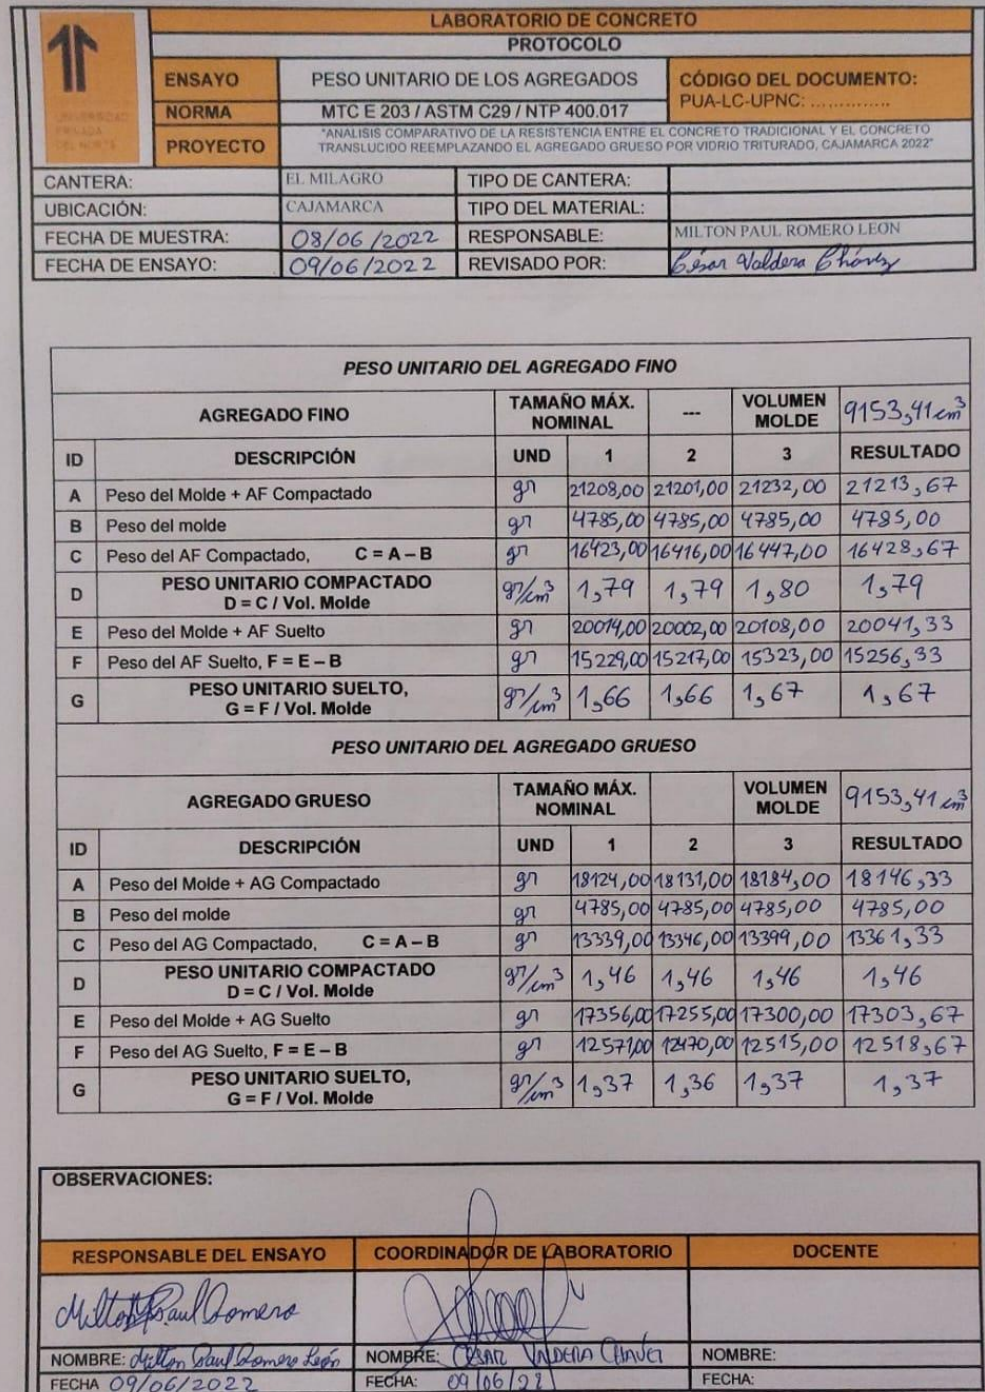 LABORATORIO DE CONCRETO
PROTOCOLO
UNIVERSIDAD
PRIVADA
DEL NORTE
ENSAYO PESO UNITARIO DE LOS AGREGADOS CÓDIGO DEL DOCUMENTO:
NORMA MTC E 203 / ASTM C29 / NTP 400.017 PUA-LC-UPNC: ..............
PROYECTO "ANALISIS COMPARATIVO DE LA RESISTENCIA ENTRE EL CONCRETO TRADICIONAL Y EL CONCRETO
TRANSLUCIDO REEMPLAZANDO EL AGREGADO GRUESO POR VIDRIO TRITURADO, CAJAMARCA 2022"
CANTERA: EL MILAGRO TIPO DE CANTERA:
UBICACIÓN: CAJAMARCA TIPO DEL MATERIAL:
FECHA DE MUESTRA: 08/06/2022 RESPONSABLE: MILTON PAUL ROMERO LEON
FECHA DE ENSAYO: 09/06/2022 REVISADO POR: César Valdera Chávez
PESO UNITARIO DEL AGREGADO FINO
AGREGADO FINO TAMAÑO MÁX. NOMINAL --- VOLUMEN MOLDE 9153,41 cm³
ID DESCRIPCIÓN UND 1 2 3 RESULTADO
A Peso del Molde + AF Compactado gr 21208,00 21201,00 21232,00 21213,67
B Peso del molde gr 4785,00 4785,00 4785,00 4785,00
C Peso del AF Compactado, C = A – B gr 16423,00 16416,00 16447,00 16428,67
D PESO UNITARIO COMPACTADO D = C / Vol. Molde gr/cm³ 1,79 1,79 1,80 1,79
E Peso del Molde + AF Suelto gr 20014,00 20002,00 20108,00 20041,33
F Peso del AF Suelto, F = E – B gr 15229,00 15217,00 15323,00 15256,33
G PESO UNITARIO SUELTO, G = F / Vol. Molde gr/cm³ 1,66 1,66 1,67 1,67
PESO UNITARIO DEL AGREGADO GRUESO
AGREGADO GRUESO TAMAÑO MÁX. NOMINAL VOLUMEN MOLDE 9153,41 cm³
ID DESCRIPCIÓN UND 1 2 3 RESULTADO
A Peso del Molde + AG Compactado gr 18124,00 18131,00 18184,00 18146,33
B Peso del molde gr 4785,00 4785,00 4785,00 4785,00
C Peso del AG Compactado, C = A – B gr 13339,00 13346,00 13399,00 13361,33
D PESO UNITARIO COMPACTADO D = C / Vol. Molde gr/cm³ 1,46 1,46 1,46 1,46
E Peso del Molde + AG Suelto gr 17356,00 17255,00 17300,00 17303,67
F Peso del AG Suelto, F = E – B gr 12571,00 12470,00 12515,00 12518,67
G PESO UNITARIO SUELTO, G = F / Vol. Molde gr/cm³ 1,37 1,36 1,37 1,37
OBSERVACIONES:
RESPONSABLE DEL ENSAYO COORDINADOR DE LABORATORIO DOCENTE
Milton Paul Romero
NOMBRE: Milton Paul Romero León NOMBRE: CÉSAR VALDERA CHAVEZ NOMBRE:
FECHA 09/06/2022 FECHA: 09/06/22 FECHA: